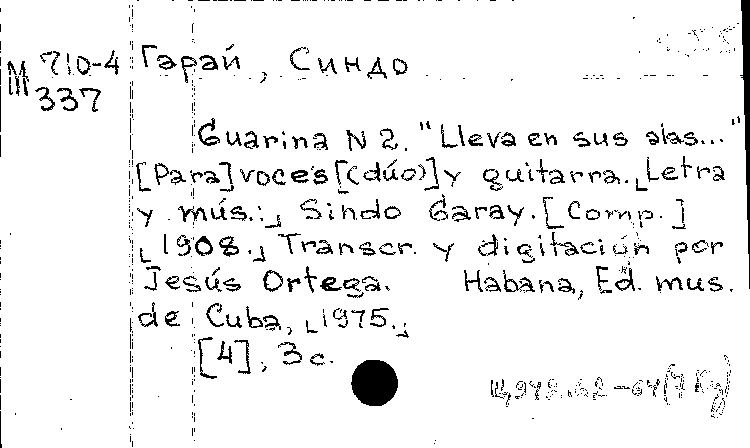 М 710-4
337
Гарай, Синдо
Guarina N 2. "Lleva en sus alas..."
[Para] voces [(dúo)] y guitarra. ⌞Letra
y mús.:⌟ Sindo Garay. [Comp.]
⌞1908.⌟ Transcr. y digitación por
Jesús Ortega. Habana, Ed. mus.
de Cuba, ⌞1975.⌟
[4], 3 с.